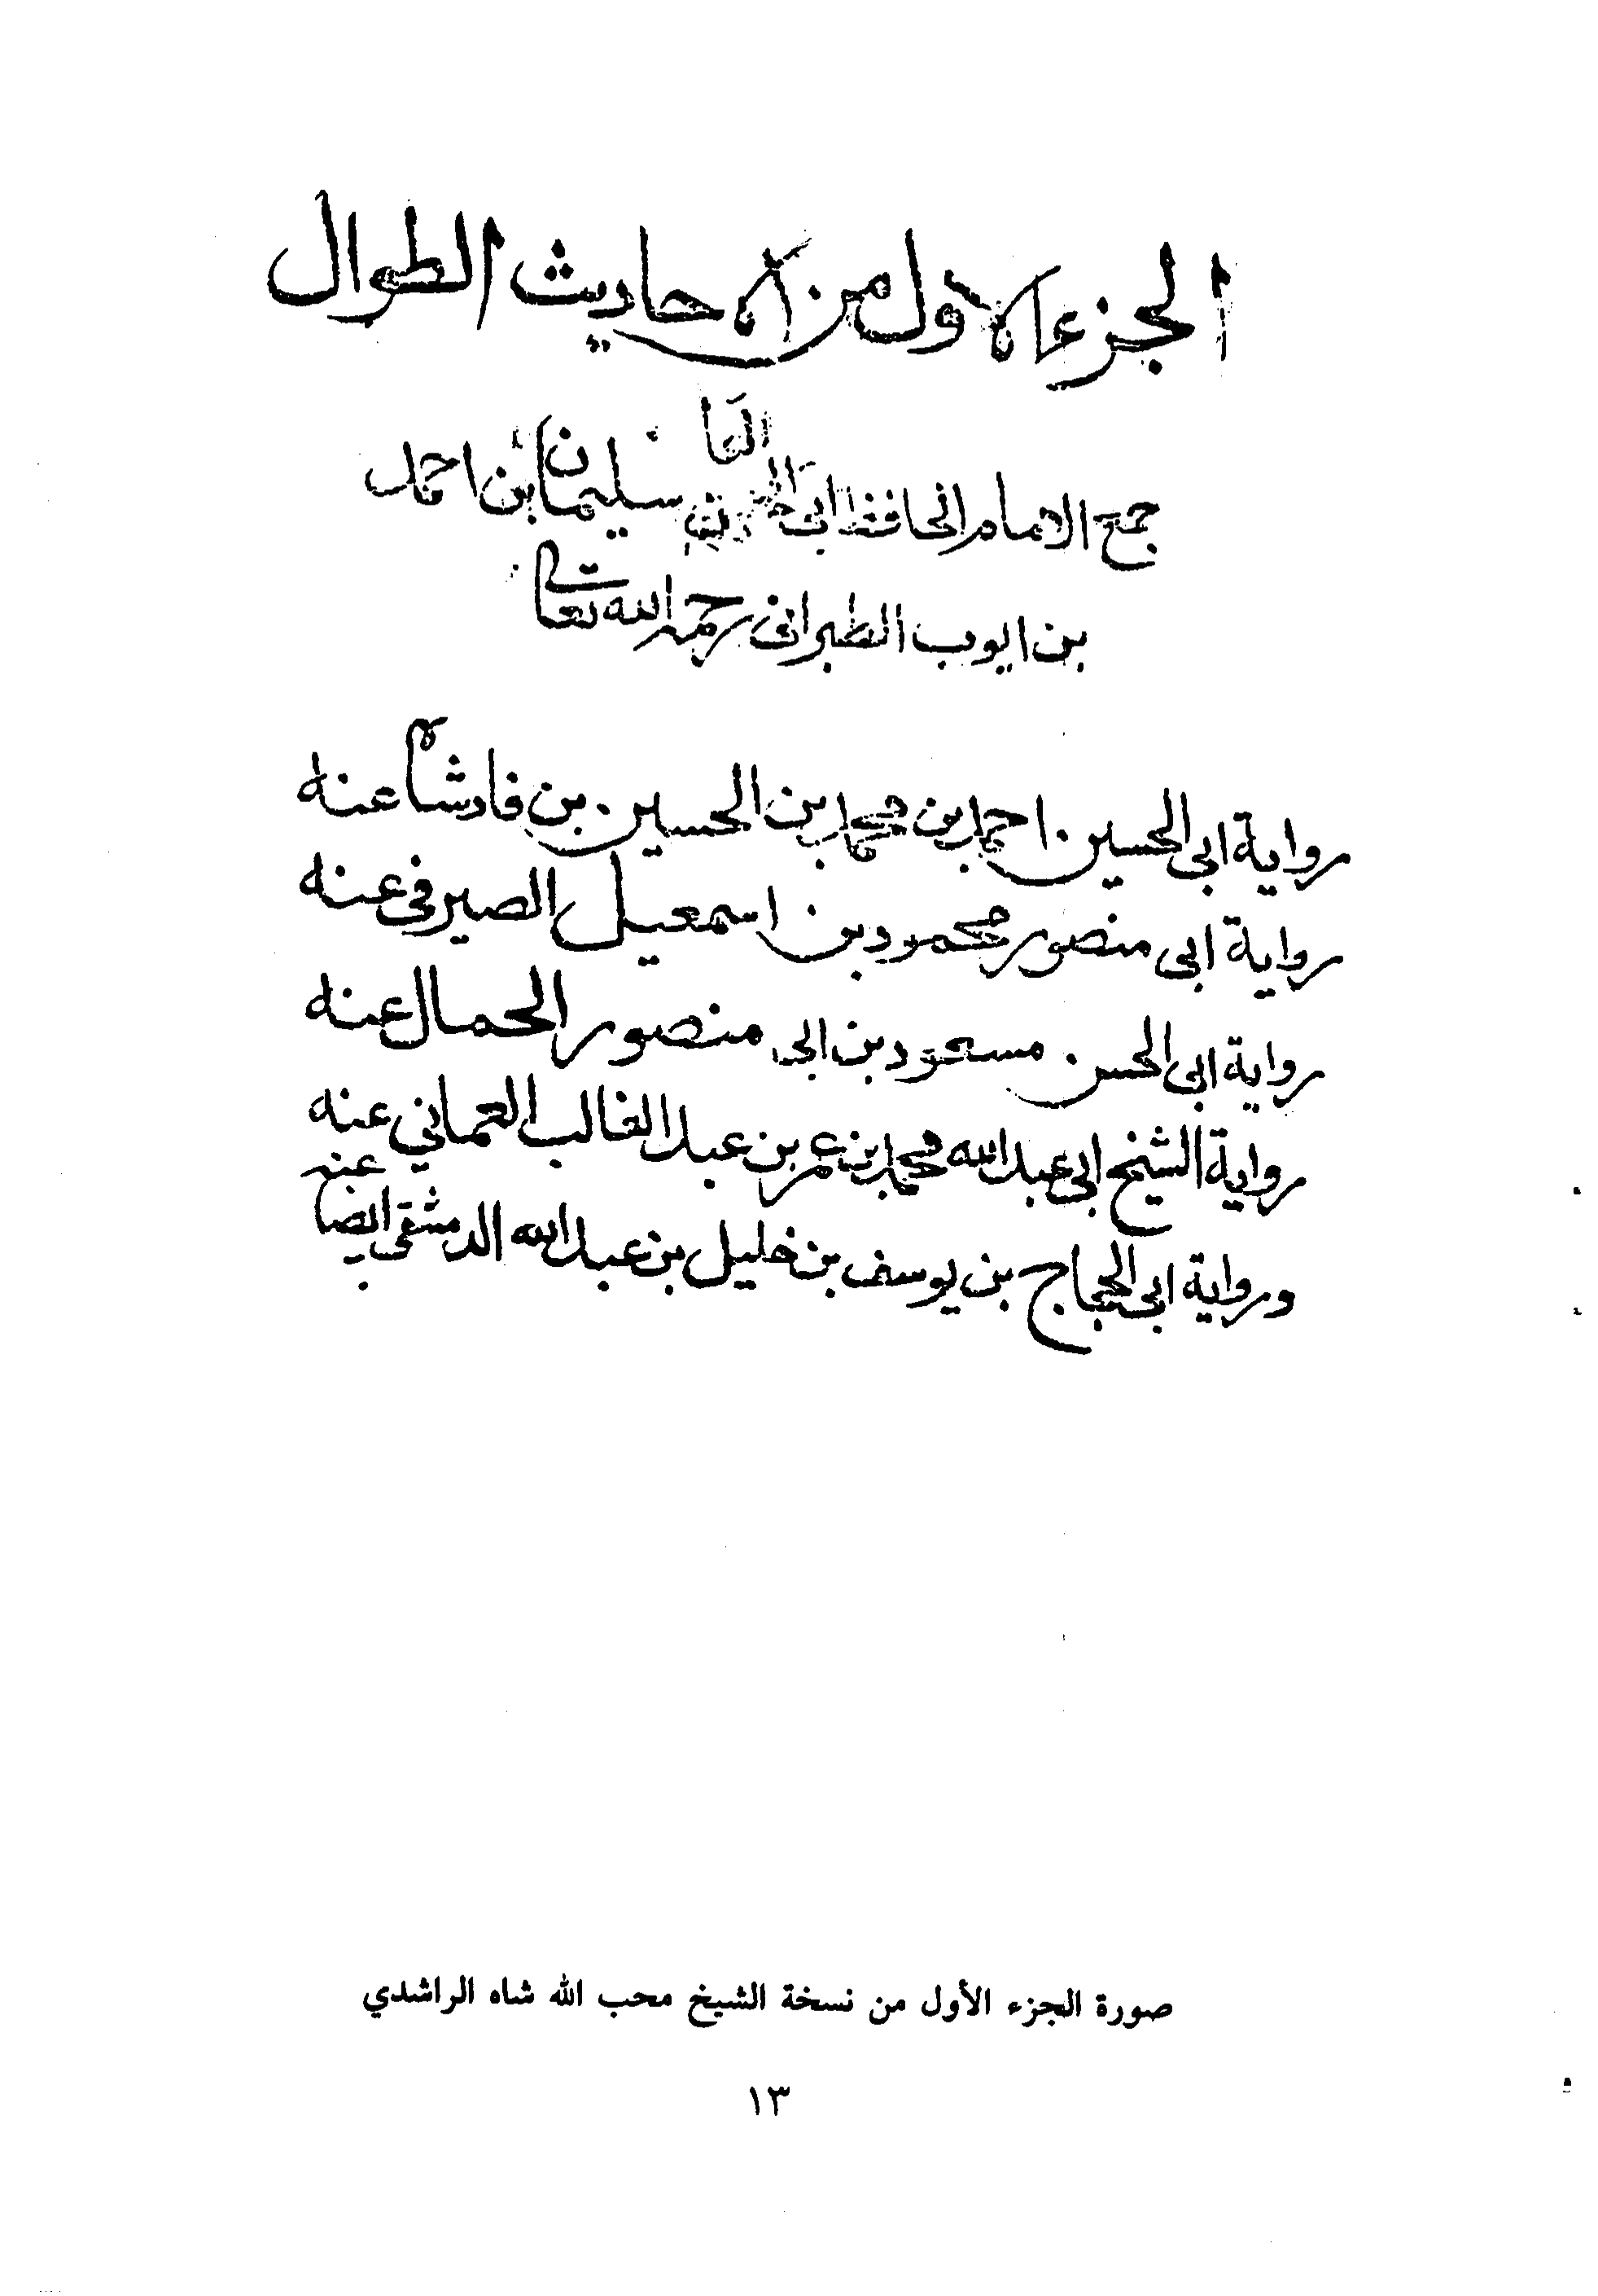 الجزء الاول من الاحاديث الطوال
جمع الامام الحافظ ابى القا سليمان بن احمد
بن ايوب الطبرانى رحمه الله تعالى
رواية ابى الحسين احمد بن محمد بن الحسين بن فادشاه عنه
رواية ابى منصور محمود بن اسمعيل الصيرفى عنه
رواية ابى الحسن مسعود بن ابى منصور الحمال عنه
رواية الشيخ ابى عبد الله محمد بن عمر بن عبد الغالب العثماني عنه
ورواية ابى الحجاج بن يوسف بن خليل بن عبد الله الدمشقى ايضا عنه
صورة الجزء الأول من نسخة الشيخ محب الله شاه الراشدي
١٣